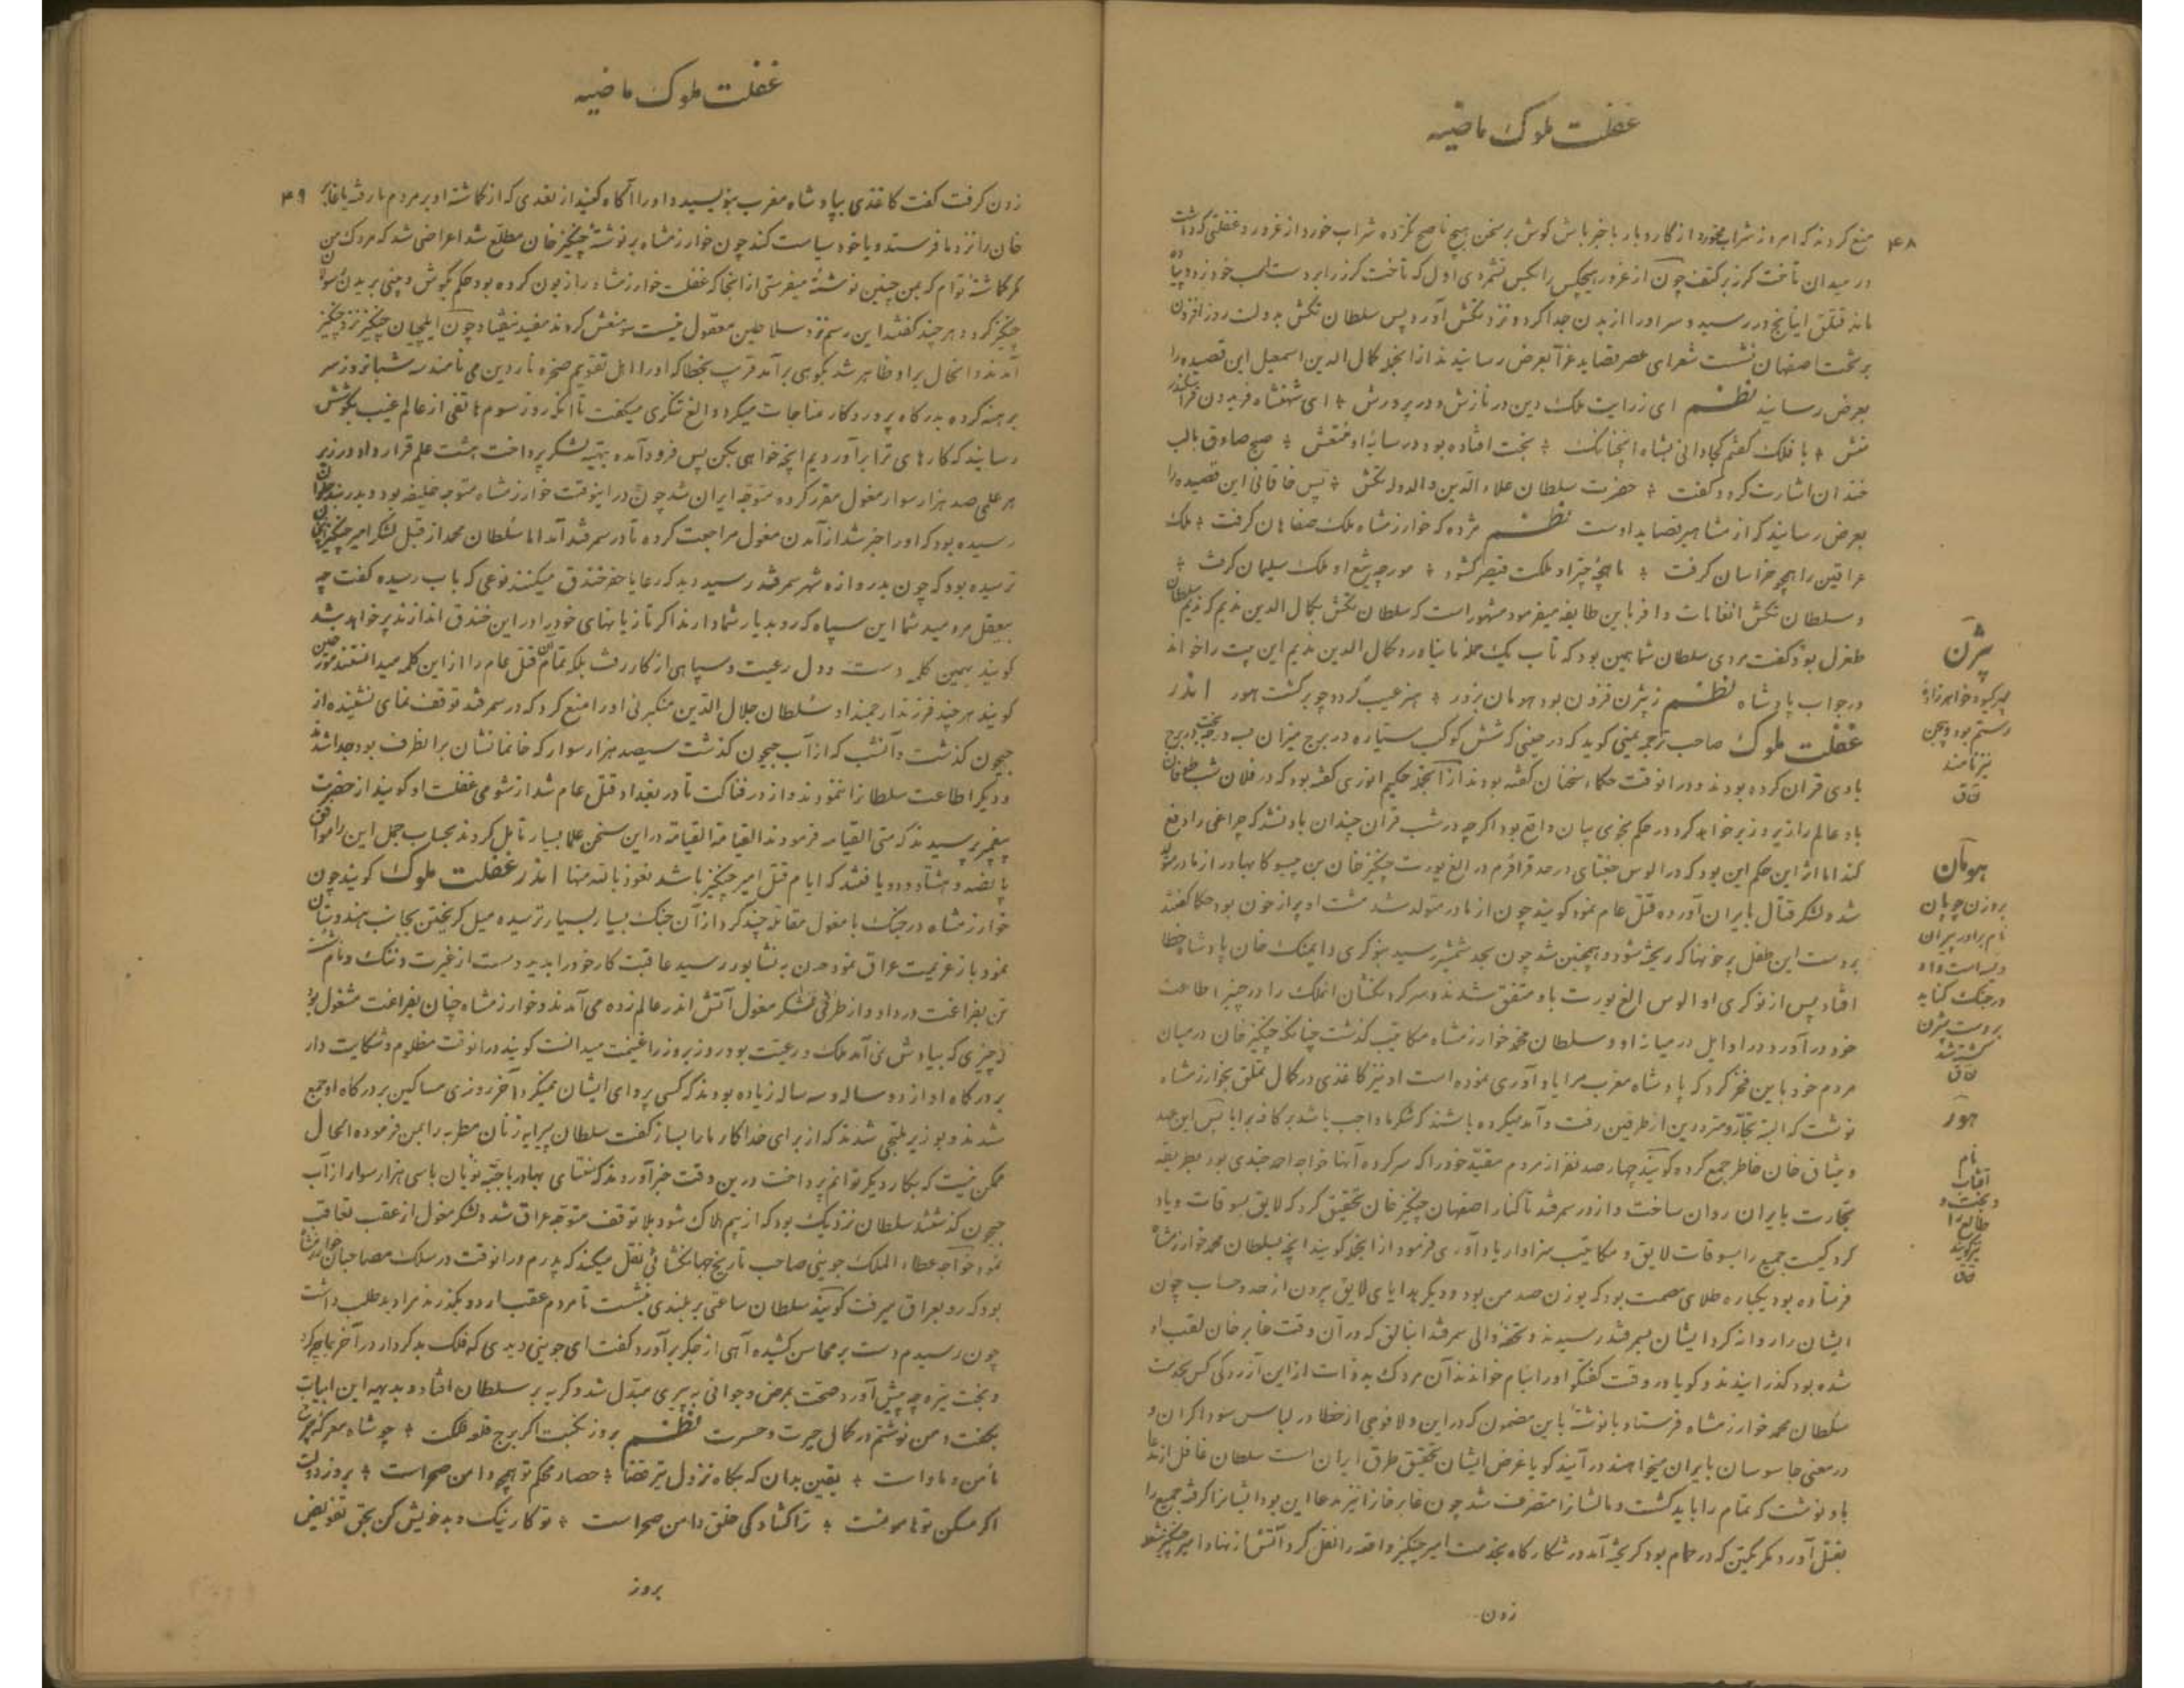 غفلت ملوک ماضیه
۴۸
منع کردند که امروز شراب مخورد از کار و بار با خبر باش کوش بر سخن هیچ ناصح نکرده شراب خورد از غرور و غفلتی که داشت
در میدان تاخت کرز بر کتف چون از غرور هیچکس را بکس نشمردی اول که تاخت کرز را بر دست اسب خود زد و پیاده
ماند قتلق اینانج در رسید و سر او را از بدن جدا کرد و نزد تکش آورد پس سلطان تکش بدولت روز افزون
بر تخت اصفهان نشست شعرای عصر قصاید غرا بعرض رسانیدند از آنجمله کمال الدین اسمعیل این قصیده را
بعرض رسانید نظم ای ز رایت ملک دین در نازش و در پرورش ٭ ای شهنشاه فریدون فر اسکندر
منش ٭ با فلک گفتم کجا دانی پناه اینجا نک ٭ بخت افتاده بود در سایه او منتعش ٭ صبح صادق با لب
خندان اشارت کرد و گفت ٭ حضرت سلطان علاء الدین والدوله تکش ٭ پس خاقانی این قصیده را
بعرض رسانید که از مشاهیر قصاید اوست نظم مژده که خوارزمشاه ملک صفاهان گرفت ٭ ملک
عراقین را همچو خراسان گرفت ٭ ماهچهٔ چتر او ملکت قیصر کشود ٭ مورچهٔ تیغ او ملک سلیمان گرفت ٭
و سلطان تکش انعامات وافر باین طایفه میفرمود مشهور است که سلطان تکش بکمال الدین ندیم که ندیم سلطان
طغرل بود گفت مردی سلطان شما همین بود که تاب یک حمله ما نیاورد کمال الدین ندیم این بیت را خواند
در جواب پادشاه نظم ز بیژن فزون بود هومان بزور ٭ هنر عیب گردد چو برگشت هور اندر
غفلت ملوک صاحب ترجمه یمینی گوید که در حینی که شش کوکب سیاره در برج میزان بسه درجه و برج
بادی قران کرده بودند و در آنوقت حکما سخنان گفته بودند از آنجمله حکیم انوری گفته بود که در فلان شب طوفان
باد عالم را زیر و زبر خواهد کرد و در حکم نجومی بیان واقع بود اگرچه در شب قران چندان باد نشد که چراغی را دفع
کند اما اثر این حکم این بود که در الوس جغتای در حد قراقرم در الغ یورت چنگیز خان بن یسوکا بهادر از مادر متولد
شد و لشکر قتال بایران آورده قتل عام نمود گویند چون از مادر متولد شد مشت او پر از خون بود حکما گفتند
بر دست این طفل پر خونها که ریخته شود و همچنین شد چون بحد شمشیر رسید بنوکری دا اینک خان پادشاه خطا
افتاد پس از نوکری او الوس الغ یورت با او متفق شدند و سرکردگشان آنملک را در چنبر اطاعت
خود درآورد و در اوایل در میانه او و سلطان محمد خوارزمشاه مکاتیب گذشت چنانکه چنگیز خان در میان
مردم خود باین فخر کرد که پادشاه مغرب مرا یاد آوری نموده است او نیز کاغذی در کمال تملق بخوارزمشاه
نوشت که البته تجار و مترددین از طرفین رفت و آمد میکرده باشند که شکر ما واجب باشد بر کافه برایا پس این عهد
و میثاق خان خاطر جمع کرده گویند چهارصد نفر از مردم مقید خود را که سرکرده آنها خواجه احمد خجندی بود بطریقه
تجارت بایران روان ساخت و از در سمرقند تا کنار اصفهان چنگیز خان تحقیق کرد که لایق بسوقات و یاد
کرد کیست جمیع را بسوقات لایق و مکاتیب سزاوار یاد آوری فرمود از آنجمله گویند آنچه بسلطان محمد خوارزمشاه
فرستاده بود یکپاره طلای مصمت بود که بوزن صد من بود و دیگر هدایای لایق بیرون از حد و حساب چون
ایشان را روانه کرد ایشان بسمرقند رسیدند و تحفه والی سمرقند اینالق که در آن وقت غایر خان لقب او
شده بود گذرانیدند و گویا در وقت گفتگو او را بنام خواندند آن مردک بد ذات از این آزردگی کس بخدمت
سلطان محمد خوارزمشاه فرستاد و با نوشته باین مضمون که در این ولا فوجی از خطا در لباس سوداگران و
در معنی جاسوسان بایران میخواهند در آیند گویا غرض ایشان تحقیق طرق ایران است سلطان غافل از مدعا
باو نوشت که تمام را باید کشت و مالشانرا متصرف شد چون غایر خانرا نیز مدعا این بود ایشانرا گرفته جمیع را
بقتل آورد مگر یکتن که در حمام بود گریخته آمد در شکارگاه بخدمت امیر چنگیز واقعه را نقل کرد آتش از نهاد امیر چنگیز شعله
زدن
بیژن
پسر گیو و خواهر زادهٔ
رستم بود و بیجن
نیز نامند
ق ق
هومان
بر وزن چوپان
نام برادر پیران
ویسه است و او
در جنگ کنابد
بر دست بیژن
کشته شد
ق ق
هور
نام
آفتاب
و بخت و
طالع را
نیز گویند
ق ق
غفلت ملوک ماضیه
۴۹
زدن گرفت گفت کاغذی بپادشاه مغرب بنویسید و او را آگاه کنید از تعدی که از گماشته او بر مردم ما رفته یا غایر
خان را نزد ما فرستد و یا خود سیاست کند چون خوارزمشاه بر نوشتهٔ چنگیز خان مطلع شد اعراضی شد که مردک من
مگر گماشتهٔ توام که بمن چنین نوشته میفرستی از آنجا که غفلت خوارزمشاه را زبون کرده بود حکم بگوش و بینی بریدن رسولان
چنگیز کرد و هر چند گفتند این رسم نزد سلاطین معقول نیست و منعش کردند مفید نیفتاد چون ایلچیان چنگیز نزد چنگیز
آمدند و آنحال بر او ظاهر شد بکوهی برآمد قرب بخطا که او را اهل تقویم صخره ناردین می نامند سه شبانروز سر
برهنه کرده بدرگاه پروردگار مناجات میکرد و الغ تنگری میگفت تا آنکه روز سوم هاتفی از عالم غیب بگوشش
رسانید که کارهای ترا برآوردیم آنچه خواهی بکن پس فرود آمده بتهیه لشکر پرداخت هشت علم قرار داد و در زیر
هر علمی صد هزار سوار مغول مقرر کرده متوجه ایران شد چون در اینوقت خوارزمشاه متوجه خلیفه بود و بدربند حلوان
رسیده بود که او را خبر شد از آمدن مغول مراجعت کرده تا در سمرقند آمد اما سلطان محمد از قبل لشکر امیر چنگیز چنان
ترسیده بود که چون بدروازه شهر سمرقند رسید دید که رعایا حفر خندق میکنند نوعی که باب رسیده گفت چه
بیعقل مردمید شما این سپاه که رو بدیار شما دارند اگر تازیانهای خود را در این خندق اندازند پر خواهد شد
گویند بهمین کلمه دست و دل رعیت و سپاهی از کار رفت بلکه تمام آن قتل عام را از این کلمه میدانستند مورخین
گویند هر چند فرزند ارجمند او سلطان جلال الدین منکبرنی او را منع کرد که در سمرقند توقف نمای نشنیده از
جیحون گذشت و آنشب که از آب جیحون گذشت سیصد هزار سوار که خانمانشان بر آنطرف بود جدا شدند
و دیگر اطاعت سلطانرا ننمودند و از در فناکت تا در بغداد قتل عام شد از شومی غفلت او گویند از حضرت
پیغمبر پرسیدند که متی القیامه فرمودند القیامة القیامة در این سخن علما بسیار تامل کردند بحساب جمل این را موافق
پانصد و هشتاد و دو یافتند که ایام قتل امیر چنگیز باشد نعوذ بالله منها اندر غفلت ملوک گویند چون
خوارزمشاه در جنگ با مغول مقابله چند کرد از آن جنگ بسیار بسیار ترسیده میل گریختن بجانب هندوستان
نمود باز عزیمت عراق نمود چون به نشابور رسید عاقبت کار خود را بدید دست از غیرت و ننگ و نام شست
تن بفراغت درداد و از طرفی لشکر مغول آتش اندر عالم زده می آمدند و خوارزمشاه چنان بفراغت مشغول بود
که چیزی که بیادش نمی آمد ملک و رعیت بود و روز بروز را غنیمت میدانست گویند در آنوقت مظلوم و شکایت دار
بر درگاه او از دو ساله و سه ساله زیاده بودند که کسی پروای ایشان نمیکرد آخر روزی مساکین بر درگاه او جمع
شدند و بوزیر ملتجی شدند که از برای خدا کار ما را بساز گفت سلطان پیرایه زنان مطربه را بمن فرموده الحال
ممکن نیست که بکار دیگر توانم پرداخت درین وقت خبر آوردند که سنتای بهادر با جبه نویان باسی هزار سوار از آب
جیحون گذشتند سلطان نزدیک بود که از بیم هلاک شود بلا توقف متوجه عراق شد و لشکر مغول از عقب تعاقب
نمود خواجه عطاء الملک جوینی صاحب تاریخ جهانگشائی نقل میکند که پدرم در آنوقت در سلک مصاحبان خوارزمشاه
بود که رو بعراق میرفت گویند سلطان ساعتی بر بلندی نشست تا مردم عقب اردو بگذرند مرا دید طلب داشت
چون رسیدم دست بر محاسن کشیده آهی از جگر برآورد گفت ای جوینی دیدی که فلک بدکردار در آخر بما چه کرد
و بخت تیره چه پیش آورد صحت بمرض و جوانی به پیری مبدل شد و گریه بر سلطان افتاد و بدیهه این ابیات
بگفت و من نوشتم در کمال حیرت و حسرت نظم بروز نکبت اگر برج قلعه فلک ٭ چو شاه معرکه چرخ
مأمن و ماوا است ٭ یقین بدان که بگاه نزول تیر قضا ٭ حصار محکم تو همچو دامن صحراست ٭ بروز دولت
اگر مسکن تو هامونست ٭ ترا گشادگی خلق دامن صحراست ٭ تو کار نیک و بد خویش کن بحق تفویض
بروز